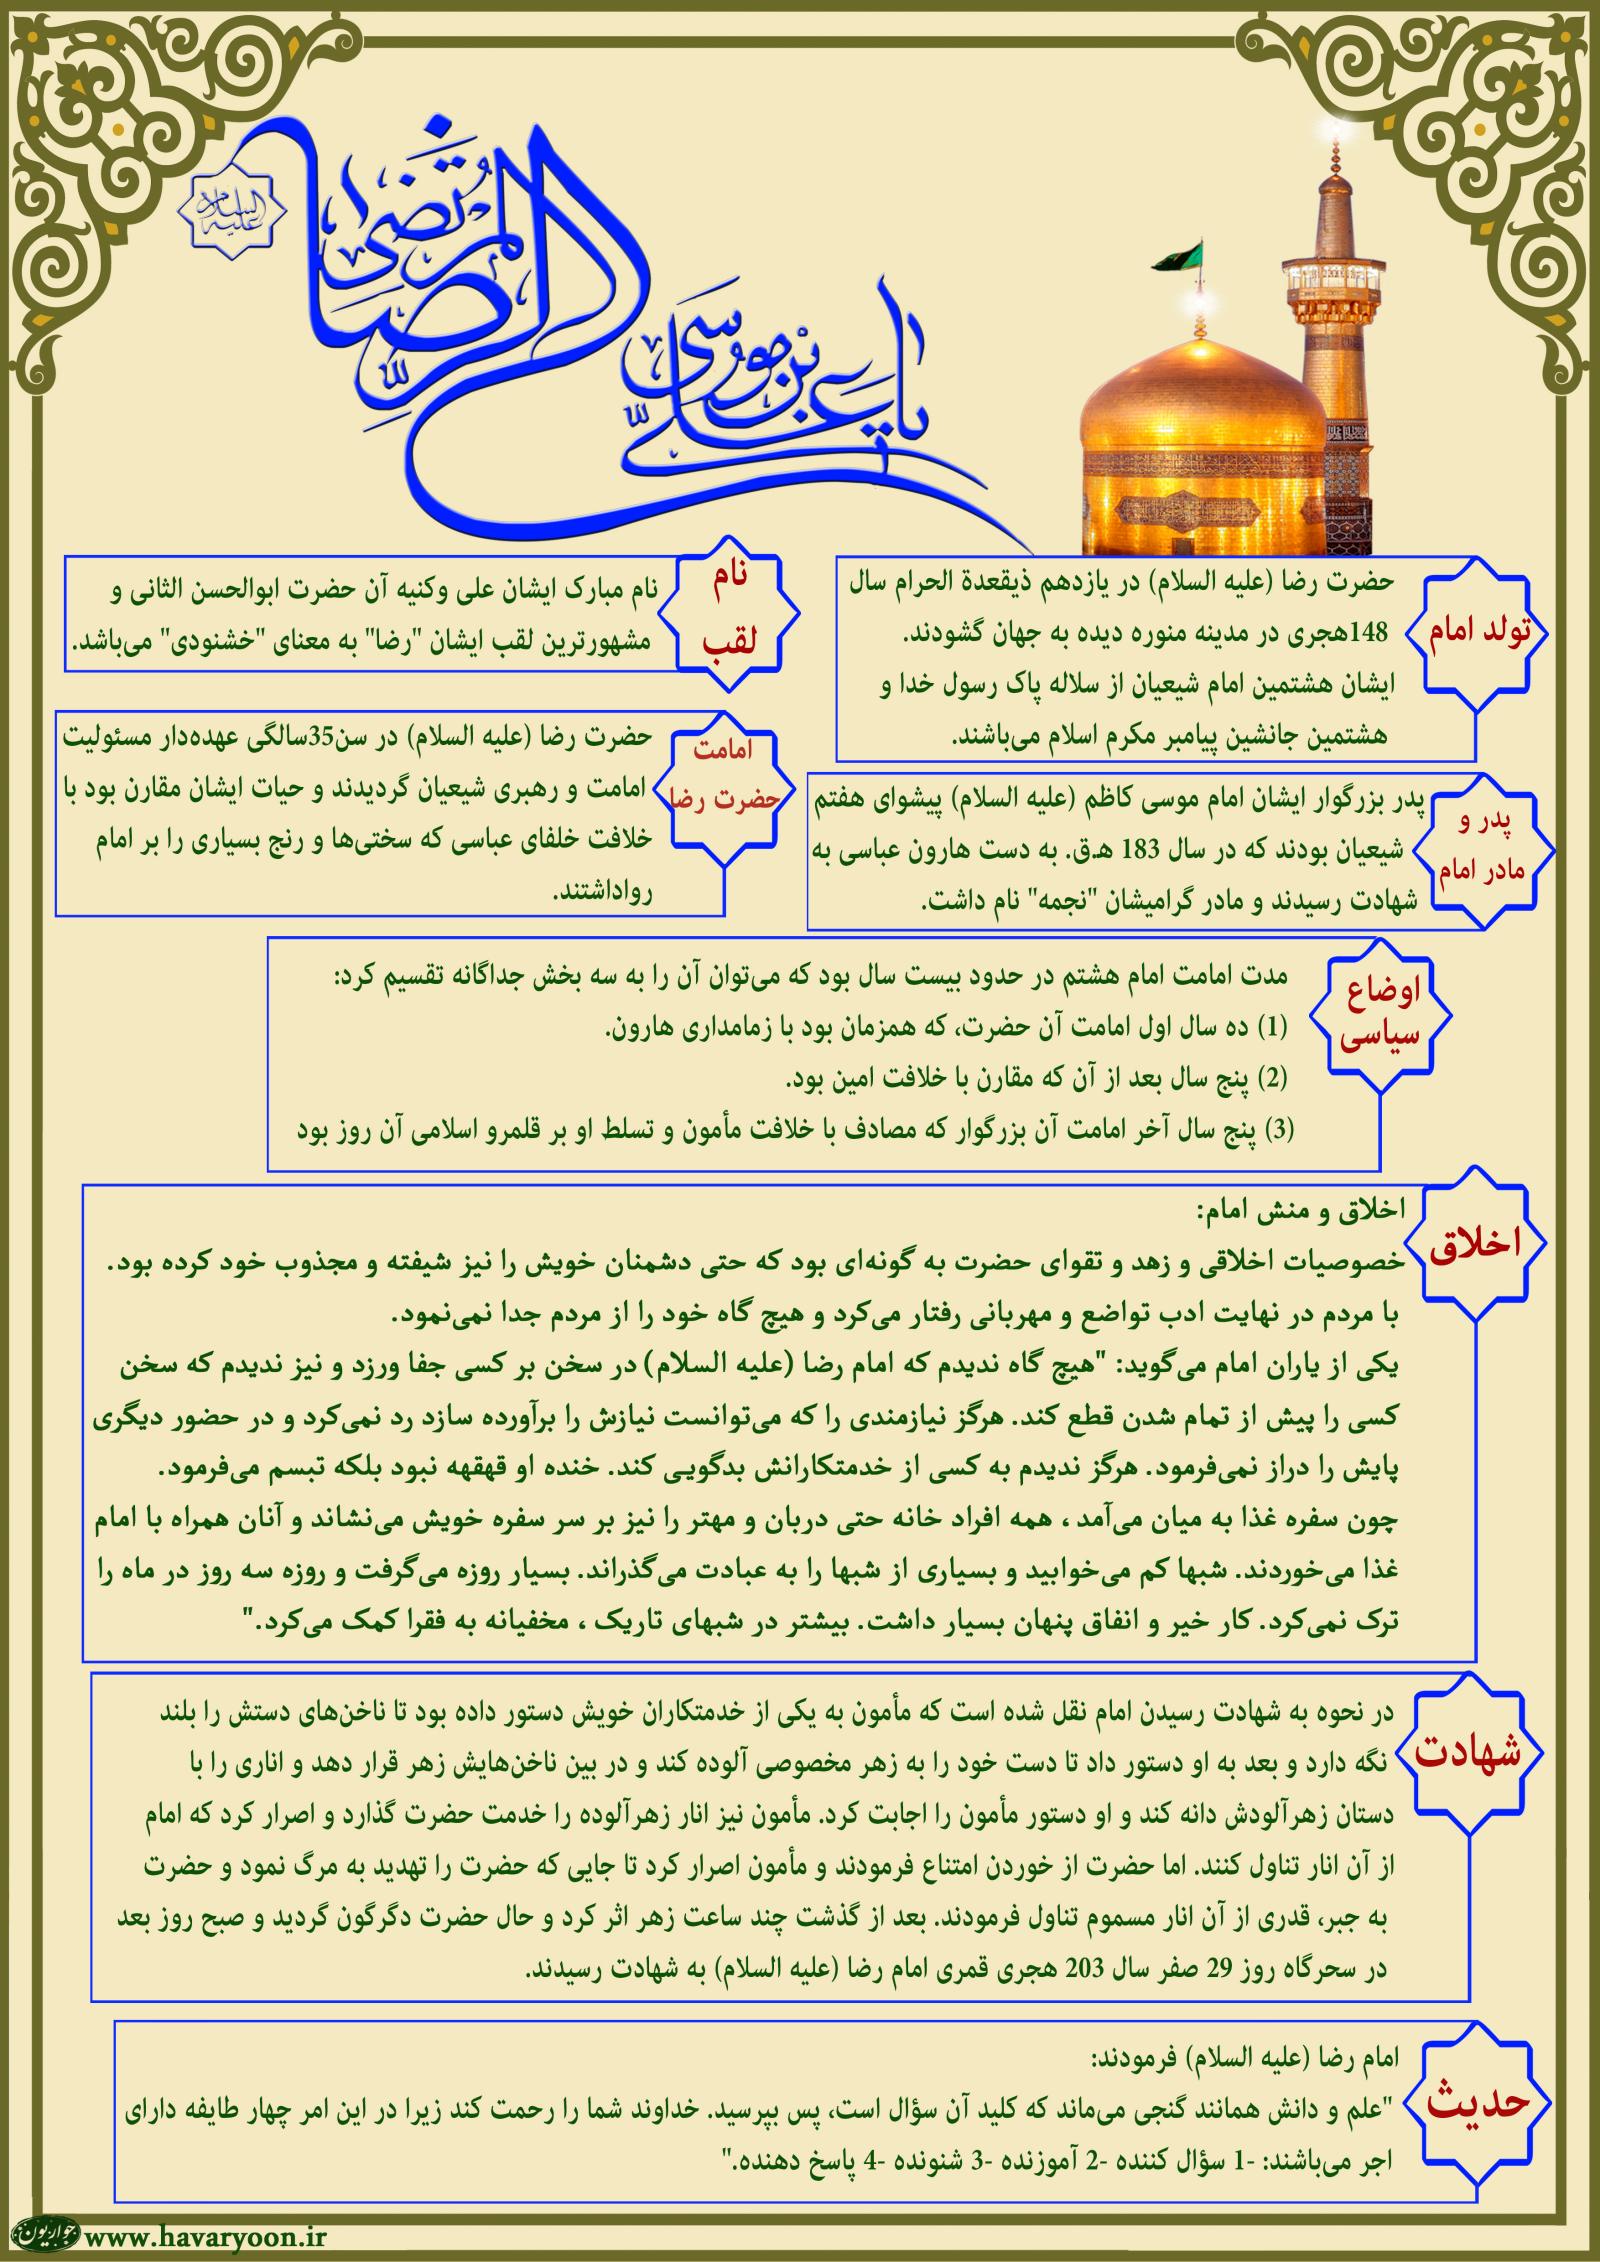 یا علی بن موسی الرضا المرتضی
علیه السلام
تولد امام
حضرت رضا (علیه السلام) در یازدهم ذیقعدة الحرام سال
148هجری در مدینه منوره دیده به جهان گشودند.
ایشان هشتمین امام شیعیان از سلاله پاک رسول خدا و
هشتمین جانشین پیامبر مکرم اسلام می‌باشند.
نام
لقب
نام مبارک ایشان علی وکنیه آن حضرت ابوالحسن الثانی و
مشهورترین لقب ایشان "رضا" به معنای "خشنودی" می‌باشد.
پدر و
مادر امام
پدر بزرگوار ایشان امام موسی کاظم (علیه السلام) پیشوای هفتم
شیعیان بودند که در سال 183 هـ.ق. به دست هارون عباسی به
شهادت رسیدند و مادر گرامیشان "نجمه" نام داشت.
امامت
حضرت رضا
حضرت رضا (علیه السلام) در سن35سالگی عهده‌دار مسئولیت
امامت و رهبری شیعیان گردیدند و حیات ایشان مقارن بود با
خلافت خلفای عباسی که سختی‌ها و رنج بسیاری را بر امام
رواداشتند.
اوضاع
سیاسی
مدت امامت امام هشتم در حدود بیست سال بود که می‌توان آن را به سه بخش جداگانه تقسیم کرد:
(1) ده سال اول امامت آن حضرت، که همزمان بود با زمامداری هارون.
(2) پنج سال بعد از آن که مقارن با خلافت امین بود.
(3) پنج سال آخر امامت آن بزرگوار که مصادف با خلافت مأمون و تسلط او بر قلمرو اسلامی آن روز بود
اخلاق
اخلاق و منش امام:
خصوصیات اخلاقی و زهد و تقوای حضرت به گونه‌ای بود که حتی دشمنان خویش را نیز شیفته و مجذوب خود کرده بود.
با مردم در نهایت ادب تواضع و مهربانی رفتار می‌کرد و هیچ گاه خود را از مردم جدا نمی‌نمود.
یکی از یاران امام می‌گوید: "هیچ گاه ندیدم که امام رضا (علیه السلام) در سخن بر کسی جفا ورزد و نیز ندیدم که سخن
کسی را پیش از تمام شدن قطع کند. هرگز نیازمندی را که می‌توانست نیازش را برآورده سازد رد نمی‌کرد و در حضور دیگری
پایش را دراز نمی‌فرمود. هرگز ندیدم به کسی از خدمتکارانش بدگویی کند. خنده او قهقهه نبود بلکه تبسم می‌فرمود.
چون سفره غذا به میان می‌آمد ، همه افراد خانه حتی دربان و مهتر را نیز بر سر سفره خویش می‌نشاند و آنان همراه با امام
غذا می‌خوردند. شبها کم می‌خوابید و بسیاری از شبها را به عبادت می‌گذراند. بسیار روزه می‌گرفت و روزه سه روز در ماه را
ترک نمی‌کرد. کار خیر و انفاق پنهان بسیار داشت. بیشتر در شبهای تاریک ، مخفیانه به فقرا کمک می‌کرد."
شهادت
در نحوه به شهادت رسیدن امام نقل شده است که مأمون به یکی از خدمتکاران خویش دستور داده بود تا ناخن‌های دستش را بلند
نگه دارد و بعد به او دستور داد تا دست خود را به زهر مخصوصی آلوده کند و در بین ناخن‌هایش زهر قرار دهد و اناری را با
دستان زهرآلودش دانه کند و او دستور مأمون را اجابت کرد. مأمون نیز انار زهرآلوده را خدمت حضرت گذارد و اصرار کرد که امام
از آن انار تناول کنند. اما حضرت از خوردن امتناع فرمودند و مأمون اصرار کرد تا جایی که حضرت را تهدید به مرگ نمود و حضرت
به جبر، قدری از آن انار مسموم تناول فرمودند. بعد از گذشت چند ساعت زهر اثر کرد و حال حضرت دگرگون گردید و صبح روز بعد
در سحرگاه روز 29 صفر سال 203 هجری قمری امام رضا (علیه السلام) به شهادت رسیدند.
حدیث
امام رضا (علیه السلام) فرمودند:
"علم و دانش همانند گنجی می‌ماند که کلید آن سؤال است، پس بپرسید. خداوند شما را رحمت کند زیرا در این امر چهار طایفه دارای
اجر می‌باشند: -1 سؤال کننده -2 آموزنده -3 شنونده -4 پاسخ دهنده."
حواریون
www.havaryoon.ir